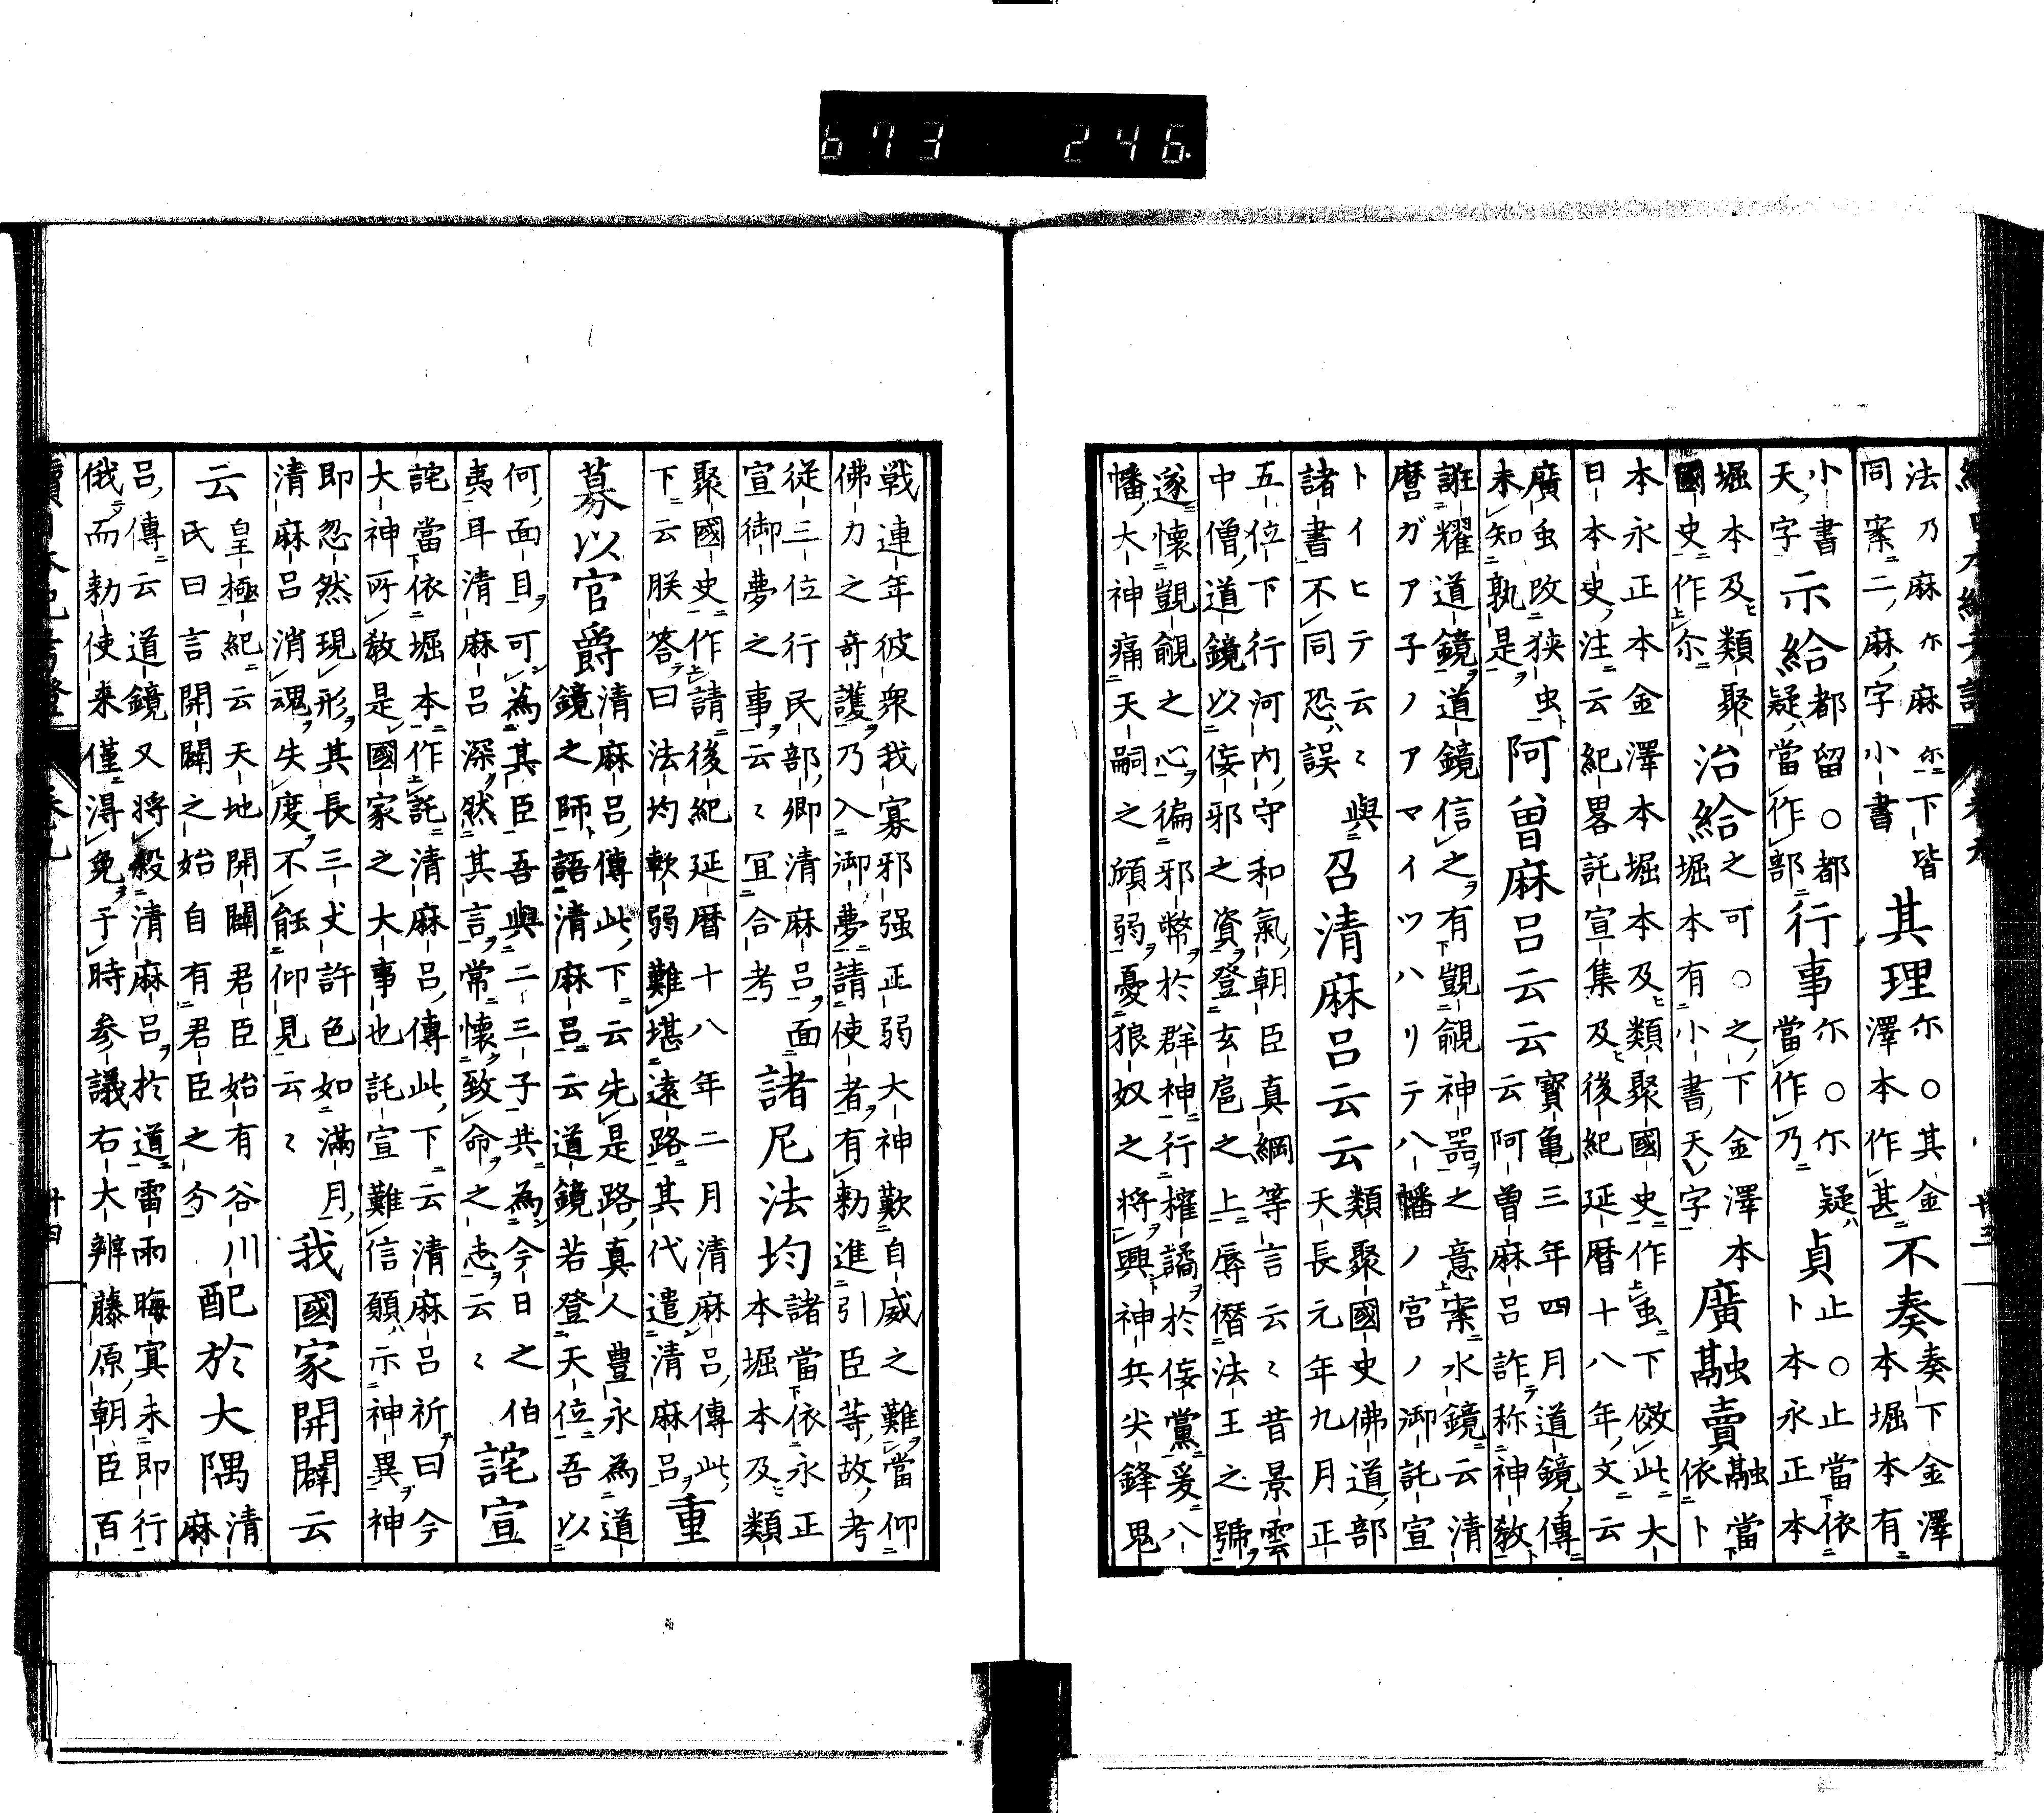 673 246.
法乃麻尓麻尓下皆
同案二麻字小書
其理
尓○其金
澤本作甚
不奏
奏下金澤
本堀本有
小書
天字
示給
都留○都
疑當作部
行事
尓○尓疑
當作乃
貞
止○止當依
卜本永正本
堀本及類聚
國史作尓
治給
之可○之下金澤本
堀本有小書天字
廣融賣
融當
依卜
本永正本金澤本堀本及類聚國史作䖝下倣此大
日本史注云紀畧託宣集及後紀延暦十八年文云
廣虫改狭虫
未知孰是
阿曽麻呂云云
寳亀三年四月道鏡傳
云阿曽麻呂詐称神教
誑耀道鏡道鏡信之有覬覦神噐之意案水鏡云清
麿ガア子ノアマイツハリテ八幡ノ宮ノ御託宣
トイヒテ云〻與
諸書不同恐誤
召清麻呂云云
類聚國史佛道部
天長元年九月正
五位下行河内守和氣朝臣真綱等言云〻昔景雲
中僧道鏡以侫邪之資登玄扈之上辱僭法王之號
遂懐覬覦之心徧邪幣於群神行權譎於侫黨爰八
幡大神痛天嗣之傾弱憂狼奴之将興神兵尖鋒鬼
戦連年彼衆我寡邪强正弱大神歎自威之難當仰
佛力之奇護乃入御夢請使者有勅進引臣等故考
從三位行民部卿清麻呂面
宣御夢之事云〻宜合考
諸尼法均
諸當依永正
本堀本及類
聚國史作請後紀延暦十八年二月清麻呂傳此
下云朕答曰法均軟弱難堪遠路其代遣清麻呂
重
募以官爵
清麻呂傳此下云先是路真人豊永為道
鏡之師語清麻呂云道鏡若登天位吾以
何面目可為其臣吾與二三子共為今日之伯
夷耳清麻呂深然其言常懐致命之志云〻
詫宣
詫當依堀本作託清麻呂傳此下云清麻呂祈曰今
大神所教是國家之大事也託宣難信願示神異神
即忽然現形其長三丈許色如満月
清麻呂消魂失度不能仰見云〻
我國家開闢云
云
皇極紀云天地開闢君臣始有谷川
氏曰言開闢之始自有君臣之分
配於大隅
清
麻
呂傳云道鏡又将殺清麻呂於道雷雨晦冥未即行
俄而勅使来僅得免于時参議右大辨藤原朝臣百